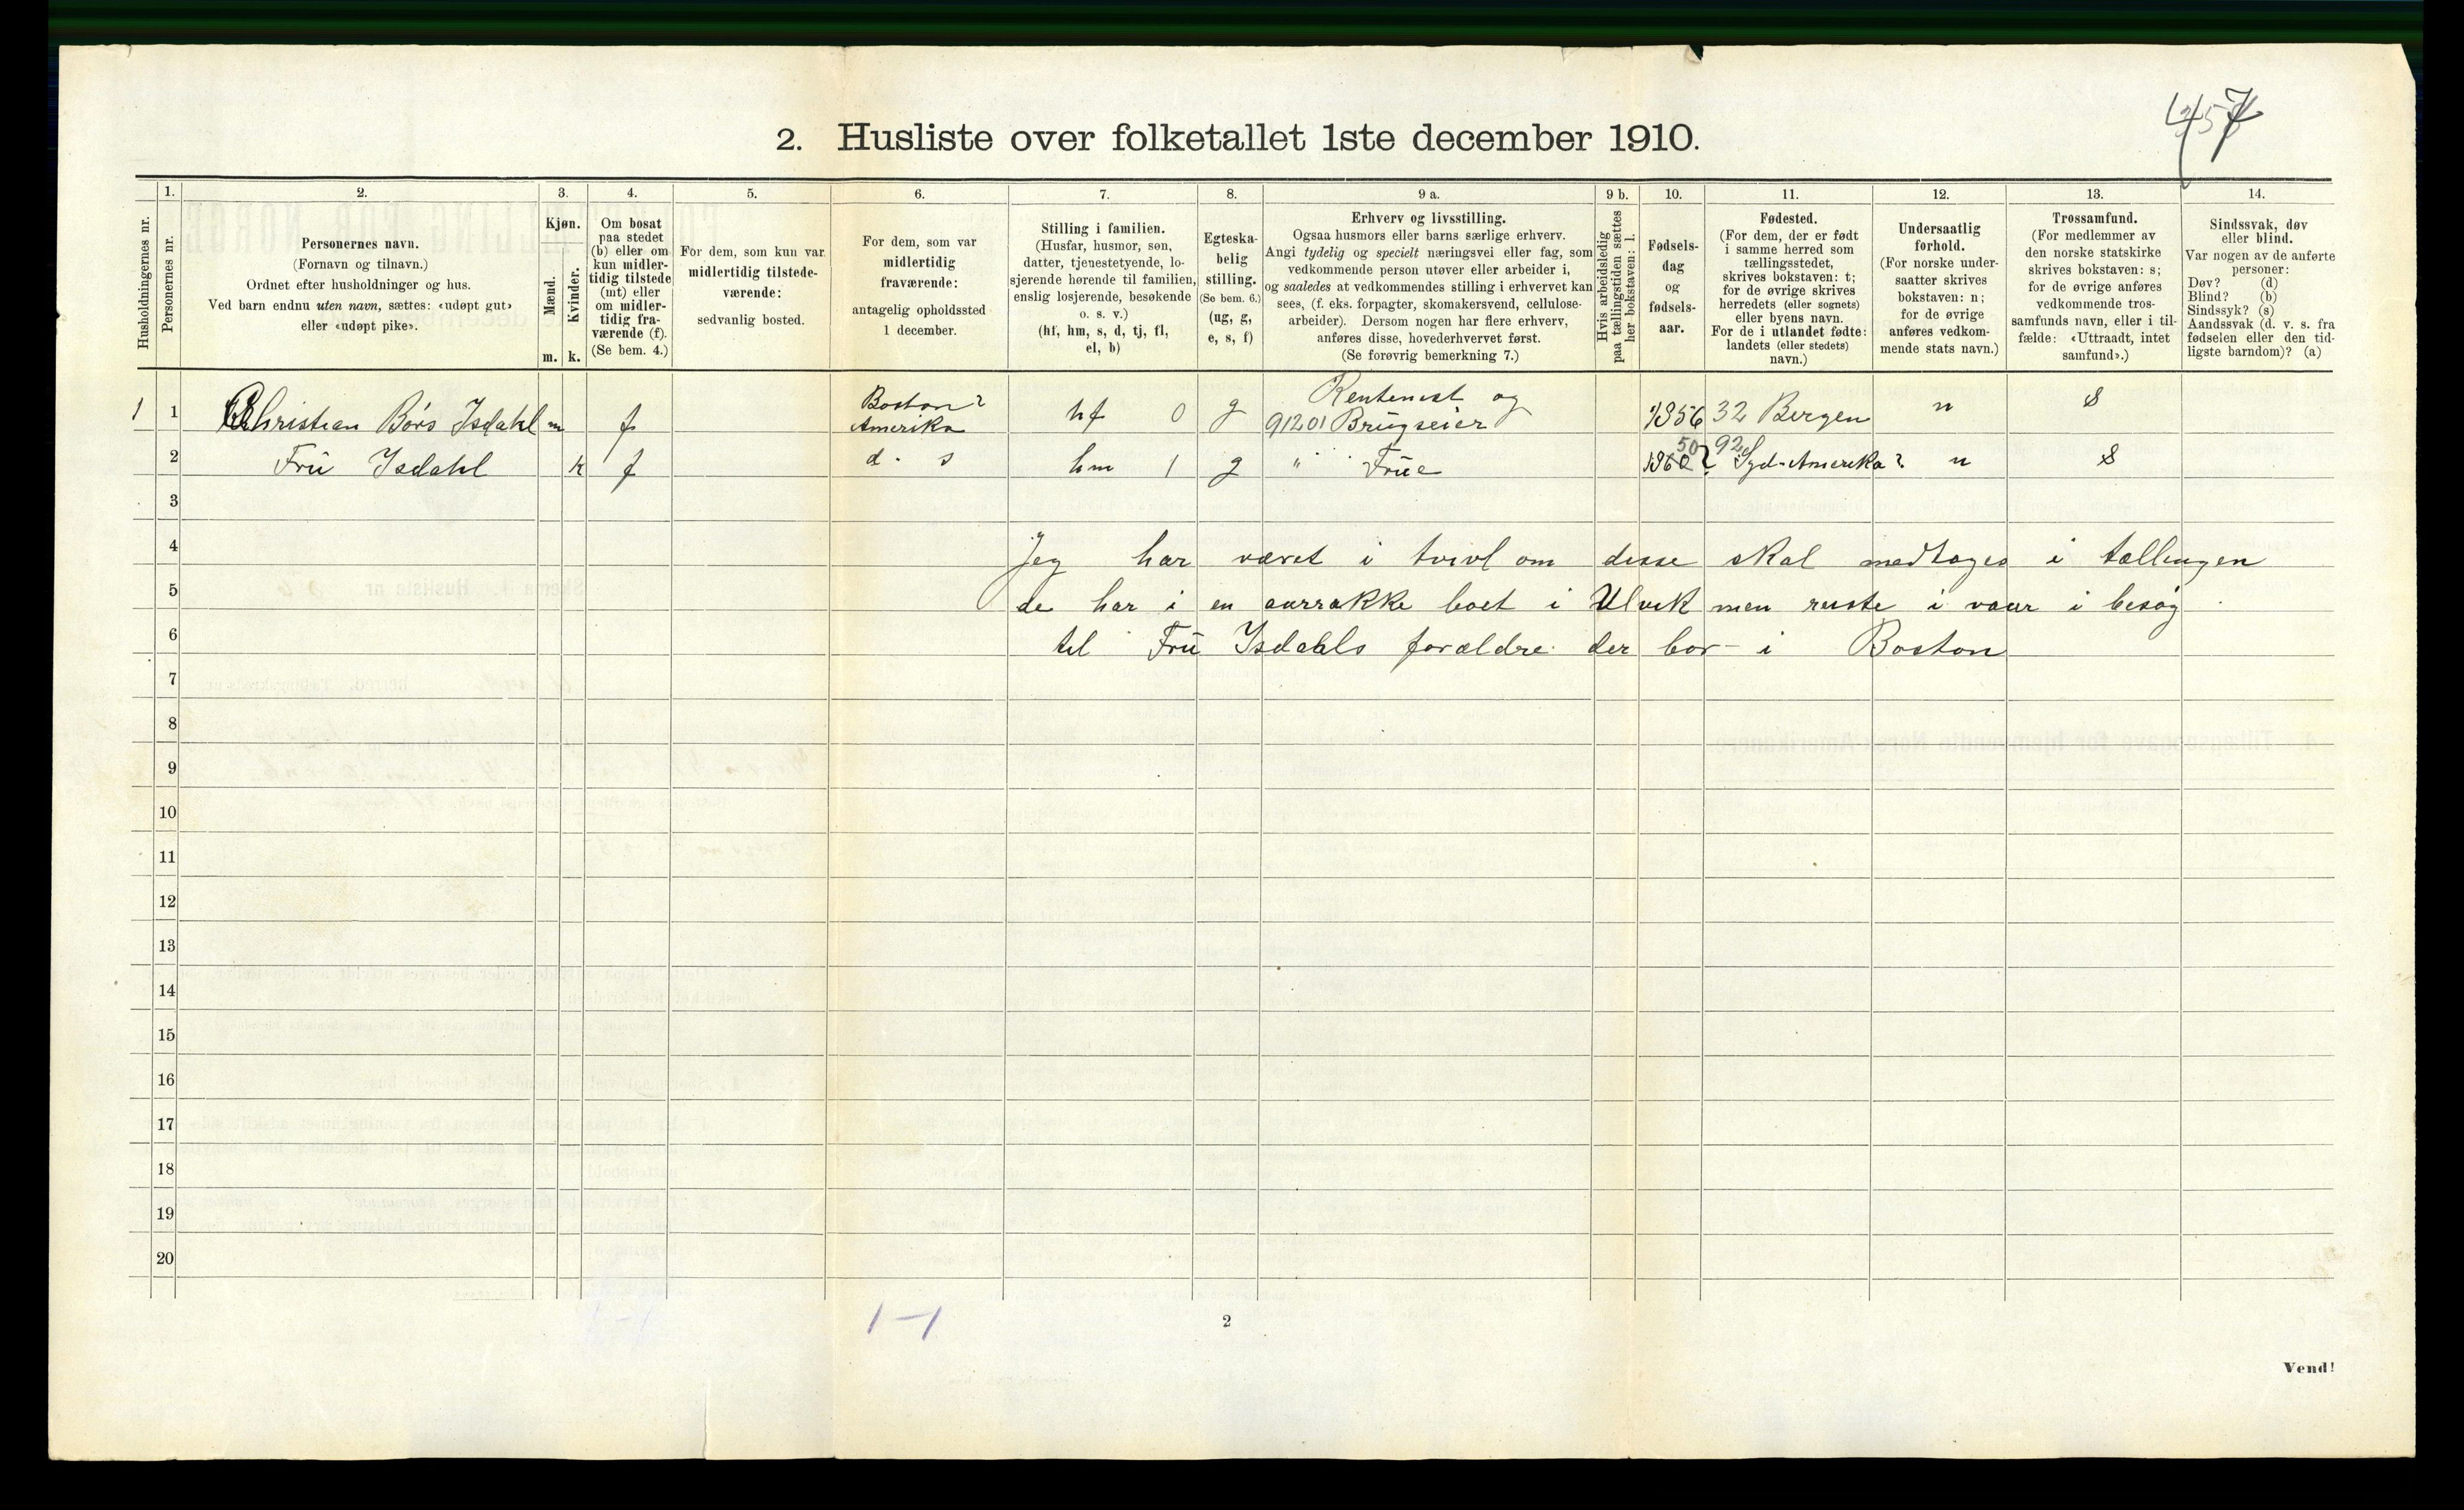 457
2. Husliste over folketallet 1ste december 1910.
Husholdningernes nr.
1.
Personernes nr.
2.
Personernes navn.
(Fornavn og tilnavn.)
Ordnet efter husholdninger og hus.
Ved barn endnu uten navn, sættes: «udøpt gut»
eller «udøpt pike».
3.
Kjøn.
Mænd.
Kvinder.
m. k.
4.
Om bosat
paa stedet
(b) eller om
kun midler-
tidig tilstede
(mt) eller
om midler-
tidig fra-
værende (f).
(Se bem. 4.)
5.
For dem, som kun var
midlertidig tilstede-
værende:
sedvanlig bosted.
6.
For dem, som var
midlertidig
fraværende:
antagelig opholdssted
1 december.
7.
Stilling i familien.
(Husfar, husmor, søn,
datter, tjenestetyende, lo-
sjerende hørende til familien,
enslig losjerende, besøkende
o. s. v.)
(hf, hm, s, d, tj, fl,
el, b)
8.
Egteska-
belig
stilling.
(Se bem. 6.)
(ug, g,
e, s, f)
9 a.
Erhverv og livsstilling.
Ogsaa husmors eller barns særlige erhverv.
Angi tydelig og specielt næringsvei eller fag, som
vedkommende person utøver eller arbeider i,
og saaledes at vedkommendes stilling i erhvervet kan
sees, (f. eks. forpagter, skomakersvend, cellulose-
arbeider). Dersom nogen har flere erhverv,
anføres disse, hovederhvervet først.
(Se forøvrig bemerkning 7.)
9 b.
Hvis arbeidsledig
paa tællingstiden sættes
her bokstaven: l.
10.
Fødsels-
dag
og
fødsels-
aar.
11.
Fødested.
(For dem, der er født
i samme herred som
tællingsstedet,
skrives bokstaven: t;
for de øvrige skrives
herredets (eller sognets)
eller byens navn.
For de i utlandet fødte:
landets (eller stedets)
navn.)
12.
Undersaatlig
forhold.
(For norske under-
saatter skrives
bokstaven: n;
for de øvrige
anføres vedkom-
mende stats navn.)
13.
Trossamfund.
(For medlemmer av
den norske statskirke
skrives bokstaven: s;
for de øvrige anføres
vedkommende tros-
samfunds navn, eller i til-
fælde: «Uttraadt, intet
samfund».)
14.
Sindssvak, døv
eller blind.
Var nogen av de anførte
personer:
Døv? (d)
Blind? (b)
Sindssyk? (s)
Aandssvak (d. v. s. fra
fødselen eller den tid-
ligste barndom)? (a)
1 1 Christian Börs Isdahl m f Boston? Amerika hf 0 g Rentenist og 91201 Brugseier 1856 32 Bergen n S
2 Frü Isdahl k f d. s hm 1 g " Früe 1860 50 ? 92 Syd-Amerika? n S
3
4 Jeg har været i tvivl om disse skal medtages i tællingen
5 de har i en aarrække boet i Ulvik men reiste i vaar i besög
6 til Frü Isdahls forældre der bor i Boston
7
8
9
10
11
12
13
14
15
16
17
18
19
20
1-1
2
Vend!